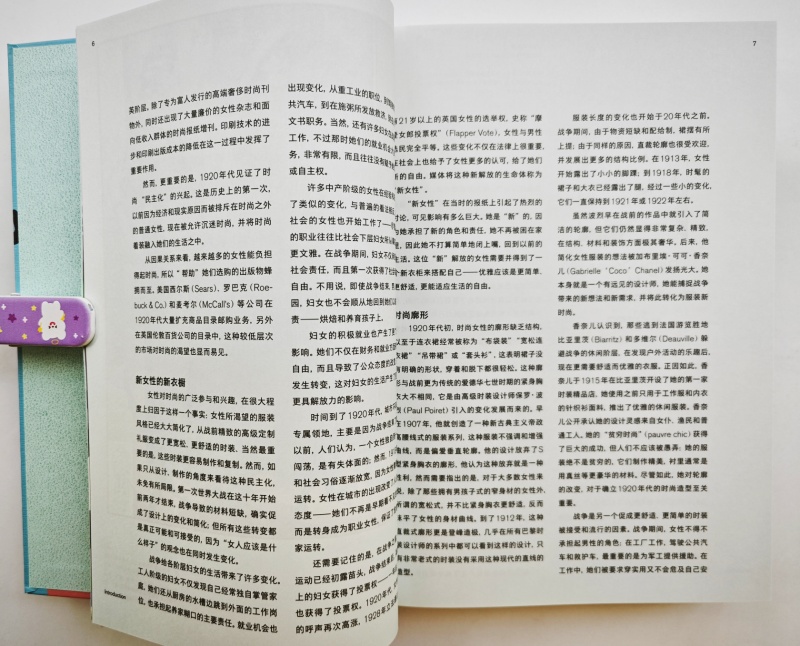 6
英阶层，除了专为富人发行的高端奢侈时尚刊
物外，同时还出现了大量廉价的女性杂志和面
向低收入群体的时尚报纸增刊。印刷技术的进
步和印刷出版成本的降低在这一过程中发挥了
重要作用。
然而，更重要的是，1920年代见证了时
尚“民主化”的兴起。这是历史上的第一次，
以前因为经济和现实原因而被排斥在时尚之外
的普通女性，现在被允许沉迷时尚，并将时尚
着装融入她们的生活之中。
从因果关系来看，越来越多的女性能负担
得起时尚，所以“帮助”她们选购的出版物蜂
拥而至。美国西尔斯（Sears）、罗巴克（Roe-
buck & Co）和麦考尔（McCall's）等公司在
1920年代大量扩充商品目录邮购业务，另外
在英国伦敦百货公司的目录中，这种较低层次
的市场对时尚的渴望也显而易见。
新女性的新衣橱
女性对时尚的广泛参与和兴趣，在很大程
度上归因于这样一个事实：女性所渴望的服装
风格已经大大简化了，从战前精致的高级定制
礼服变成了更宽松、更舒适的时装。当然最重
要的是，这些时装更容易制作和复制。然而，如
果只从设计、制作的角度来看待这种民主化，
未免有所局限。第一次世界大战在这十年开始
前两年才结束，战争导致的材料短缺，确实促
成了设计上的变化和简化；但所有这些转变都
是真正可能和可接受的，因为“女人应该是什
么样子”的观念也在同时发生变化。
战争给各阶层妇女的生活带来了许多变化。
工人阶级的妇女不仅发现自己经常独自掌管家
庭，她们还从厨房的水槽边跳到外面的工作岗
位，也承担起养家糊口的主要责任。就业机会也
introduction
出现变化，从重工业的职位，到
共汽车，到在施粥所发放救济，
文书职务。当然，还有许多妇女
工作，不过那时她们的就业机会
务，非常有限，而且往往没有
或自主权。
许多中产阶级的女性在经
了类似的变化，与普遍的看法
社会的女性也开始工作了——
的职业往往比社会下层妇女所
更文雅。在战争期间，妇女不
社会责任，而且第一次获得了社
自由。不用说，即使战争结束，
园，妇女也不会顺从地回到她们
责——烘焙和养育孩子上。
妇女的积极就业也产生了
影响。她们不仅在财务和就业方
自由，而且导致了公众态度的
发生转变，这对妇女的生活产生
更具解放力的影响。
时间到了1920年代，城市
专属领地，主要是因为战争
以前，人们认为，一个女性
闯荡，是有失体面的；然而，
和社会习俗逐渐放宽，因为女
运转。女性在城市的出现改变了
态度——她们不再是早期看
而是转身成为职业女性，保证了
家运转。
还需要记住的是，在战争之
运动已经初露苗头，战争结束后
上的妇女获得了投票权——
也获得了投票权。1920年代，
的呼声再次高涨，1928年立法
7
21岁以上的英国女性的选举权，史称“摩
女郎投票权”（Flapper Vote），女性与男性
民完全平等。这些变化不仅在法律上很重要，
社会上也给予了女性更多的认可，给了她们
的自由。媒体将这种新解放的生命体称为
“新女性”。
“新女性”在当时的报纸上引起了热烈的
讨论，可见影响有多么巨大。她是“新”的，因
为她承担了新的角色和责任，她不再被困在家
，因此她不打算简单地闭上嘴，回到以前的
生活。这位“新”解放的女性需要并得到了一
新衣柜来搭配自己——优雅应该是更简单、
更舒适，更能适应生活的自由。
时尚廓形
1920年代初，时尚女性的廓形缺乏结构，
以至于连衣裙经常被称为“布袋装”“宽松连
衣裙”“吊带裙”或“套头衫”，这表明裙子没
有明确的形状，穿着和脱下都很轻松。这种廓
形与战前更为传统的爱德华七世时期的紧身胸
衣大不相同，它是由高级时装设计师保罗·波
（Paul Poiret）引入的变化发展而来的。早
在1907年，他就创造了一种新古典主义帝政
高腰线式的服装系列，这种服装不强调和增强
曲线，而是偏爱垂直轮廓。他的设计放弃了S
型紧身胸衣的廓形，他认为这种放弃就是一种
胜利，然而需要指出的是，对于大多数女性来
说，除了那些拥有男孩子式的窄身材的女性外，
所谓的宽松式，并不比紧身胸衣更舒适，反而
平了女性的身材曲线。到了1912年，这种
直裁式廓形更是登峰造极，几乎在所有巴黎时
装设计师的系列中都可以看到这样的设计，只
有非常老式的时装没有采用这种现代的直线的
造型。
服装长度的变化也开始于20年代之前。
战争期间，由于物资短缺和配给制，裙摆有所
上提；由于同样的原因，直裁轮廓也很受欢迎，
并发展出更多的结构比例。在1913年，女性
开始露出了小小的脚踝；到1918年，时髦的
裙子和大衣已经露出了腿，经过一些小的变化，
它们一直保持到1921年或1922年左右。
虽然波烈早在战前的作品中就引入了简
洁的轮廓，但它们仍然显得非常复杂、精致，
在结构、材料和装饰方面极其奢华。后来，他
简化女性服装的想法被加布里埃·可可·香奈
儿（Gabrielle 'Coco' Chanel）发扬光大。她
本身就是一个有远见的设计师，她能捕捉战争
带来的新想法和新需求，并将此转化为服装新
时尚。
香奈儿认识到，那些逃到法国游览胜地
比亚里茨（Biarritz）和多维尔（Deauville）躲
避战争的休闲阶层，在发现户外活动的乐趣后，
现在更需要舒适而优雅的衣服。正因如此，香
奈儿于1915年在比亚里茨开设了她的第一家
时装精品店，她使用之前只用于工作服和内衣
的针织衫面料，推出了优雅的休闲服装。香奈
儿公开承认她的设计灵感来自女仆、渔民和普
通工人。她的“贫穷时尚”（pauvre chic）获得
了巨大的成功，但人们不应该被愚弄：她的服
装绝不是贫穷的，它们制作精美，衬里通常是
用真丝等更豪华的材料。尽管如此，她对轮廓
的改变，对于确立1920年代的时尚造型至关
重要。
战争是另一个促成更舒适、更简单的时装
被接受和流行的因素。战争期间，女性不得不
承担起男性的角色：在工厂工作，驾驶公共汽
车和救护车，最重要的是为军工提供援助。在
工作中，她们被要求穿实用又不会危及自己安